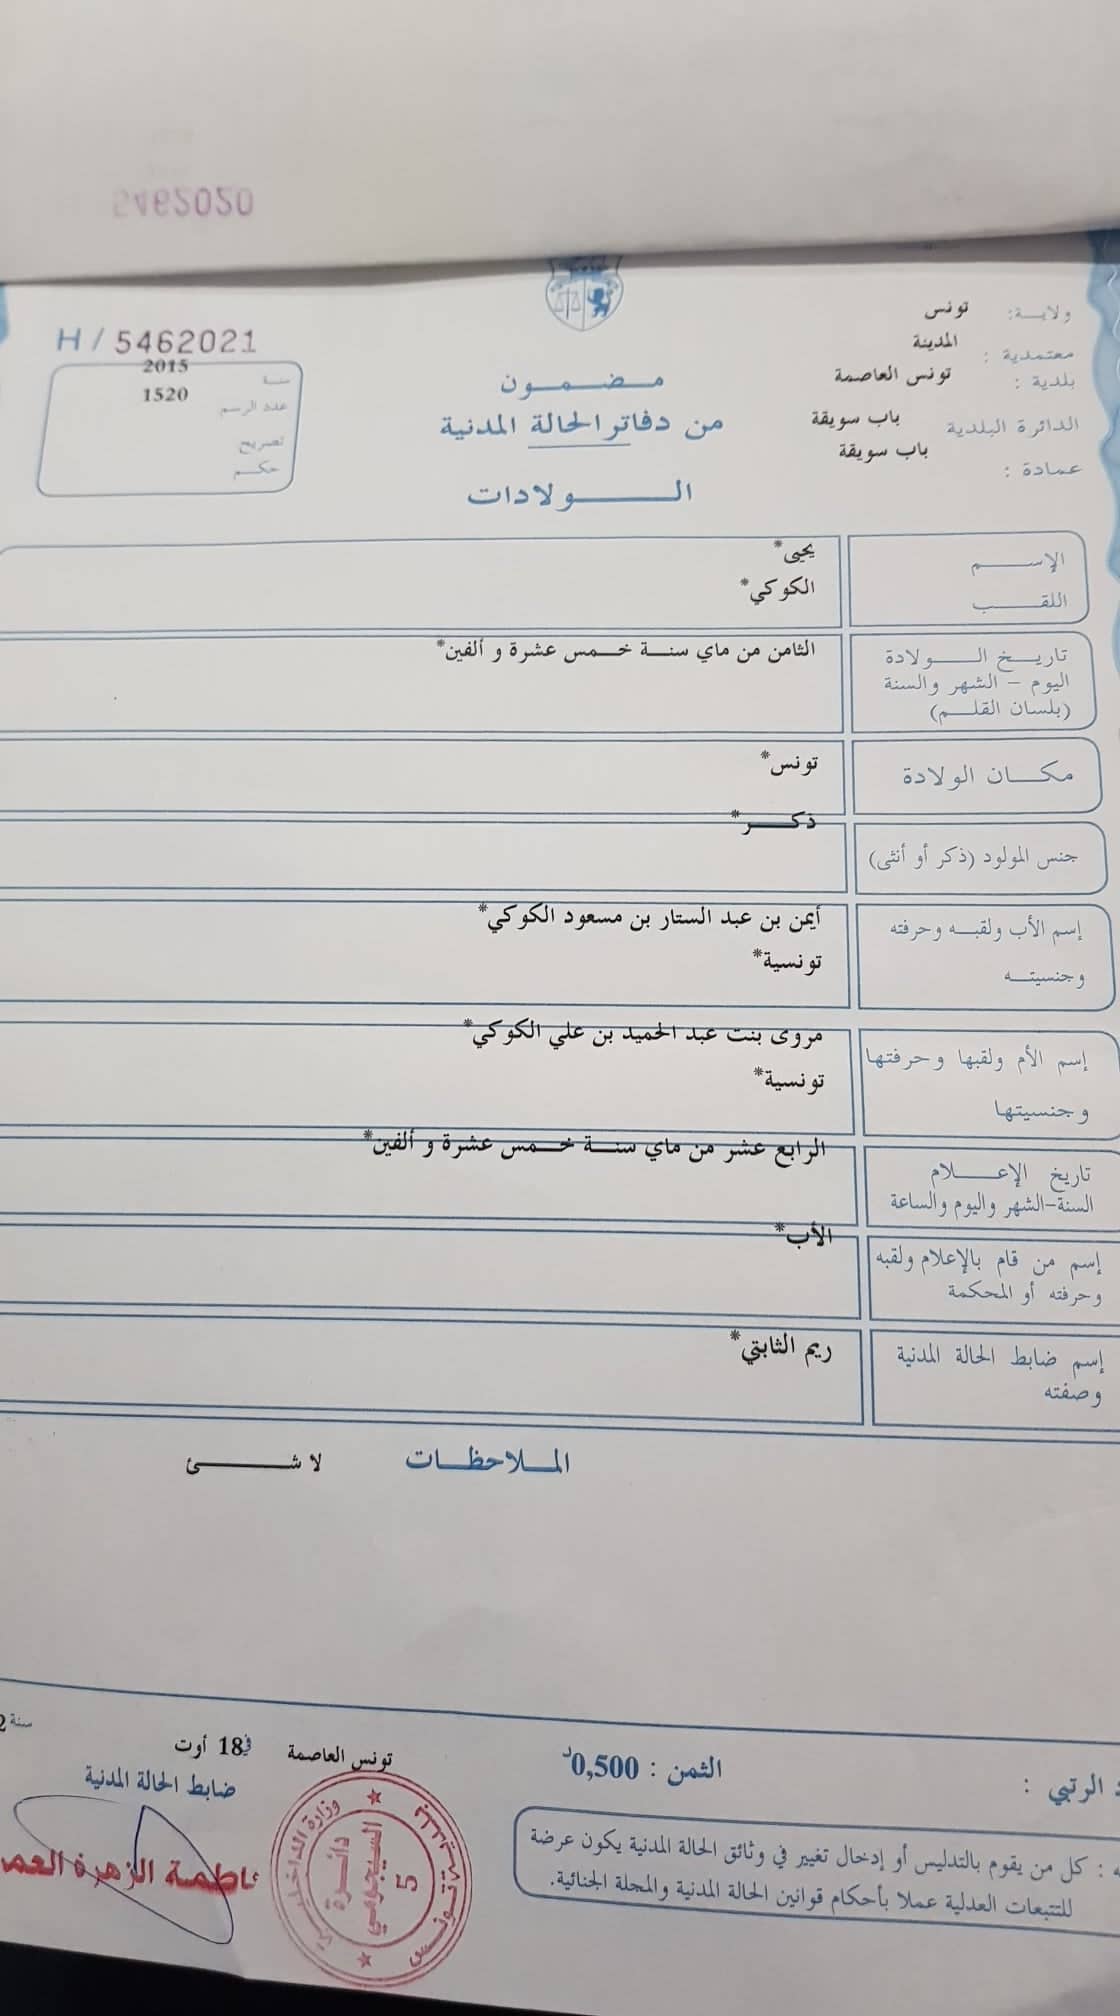 5462020
H / 5462021
سنة 2015
عدد الرسم 1520
تصريح
حكم
ولاية: تونس
معتمدية : المدينة
بلدية : تونس العاصمة
الدائرة البلدية باب سويقة
عمادة : باب سويقة
مضمون
من دفاتر الحالة المدنية
الولادات
الإسم يحيى*
اللقب الكوكي*
تاريخ الولادة الثامن من ماي سنة خمس عشرة و ألفين*
اليوم - الشهر والسنة
(بلسان القلم)
مكان الولادة تونس*
جنس المولود (ذكر أو أنثى) ذكر*
إسم الأب ولقبه وحرفته أيمن بن عبد الستار بن مسعود الكوكي*
وجنسيته تونسية*
إسم الأم ولقبها وحرفتها مروى بنت عبد الحميد بن علي الكوكي*
وجنسيتها تونسية*
تاريخ الإعلام الرابع عشر من ماي سنة خمس عشرة و ألفين*
السنة-الشهر واليوم والساعة
إسم من قام بالإعلام ولقبه الأب*
وحرفته أو المحكمة
إسم ضابط الحالة المدنية ريم الثابتي*
وصفته
الملاحظات لا شئ
الرتبي :
الثمن : 0,500د
تونس العاصمة في 18 أوت سنة
ضابط الحالة المدنية
: كل من يقوم بالتدليس أو إدخال تغيير في وثائق الحالة المدنية يكون عرضة
للتتبعات العدلية عملا بأحكام قوانين الحالة المدنية والمجلة الجنائية.
فاطمة الزهرة
وزارة الداخلية
دائرة
السيجومي
5
تونس